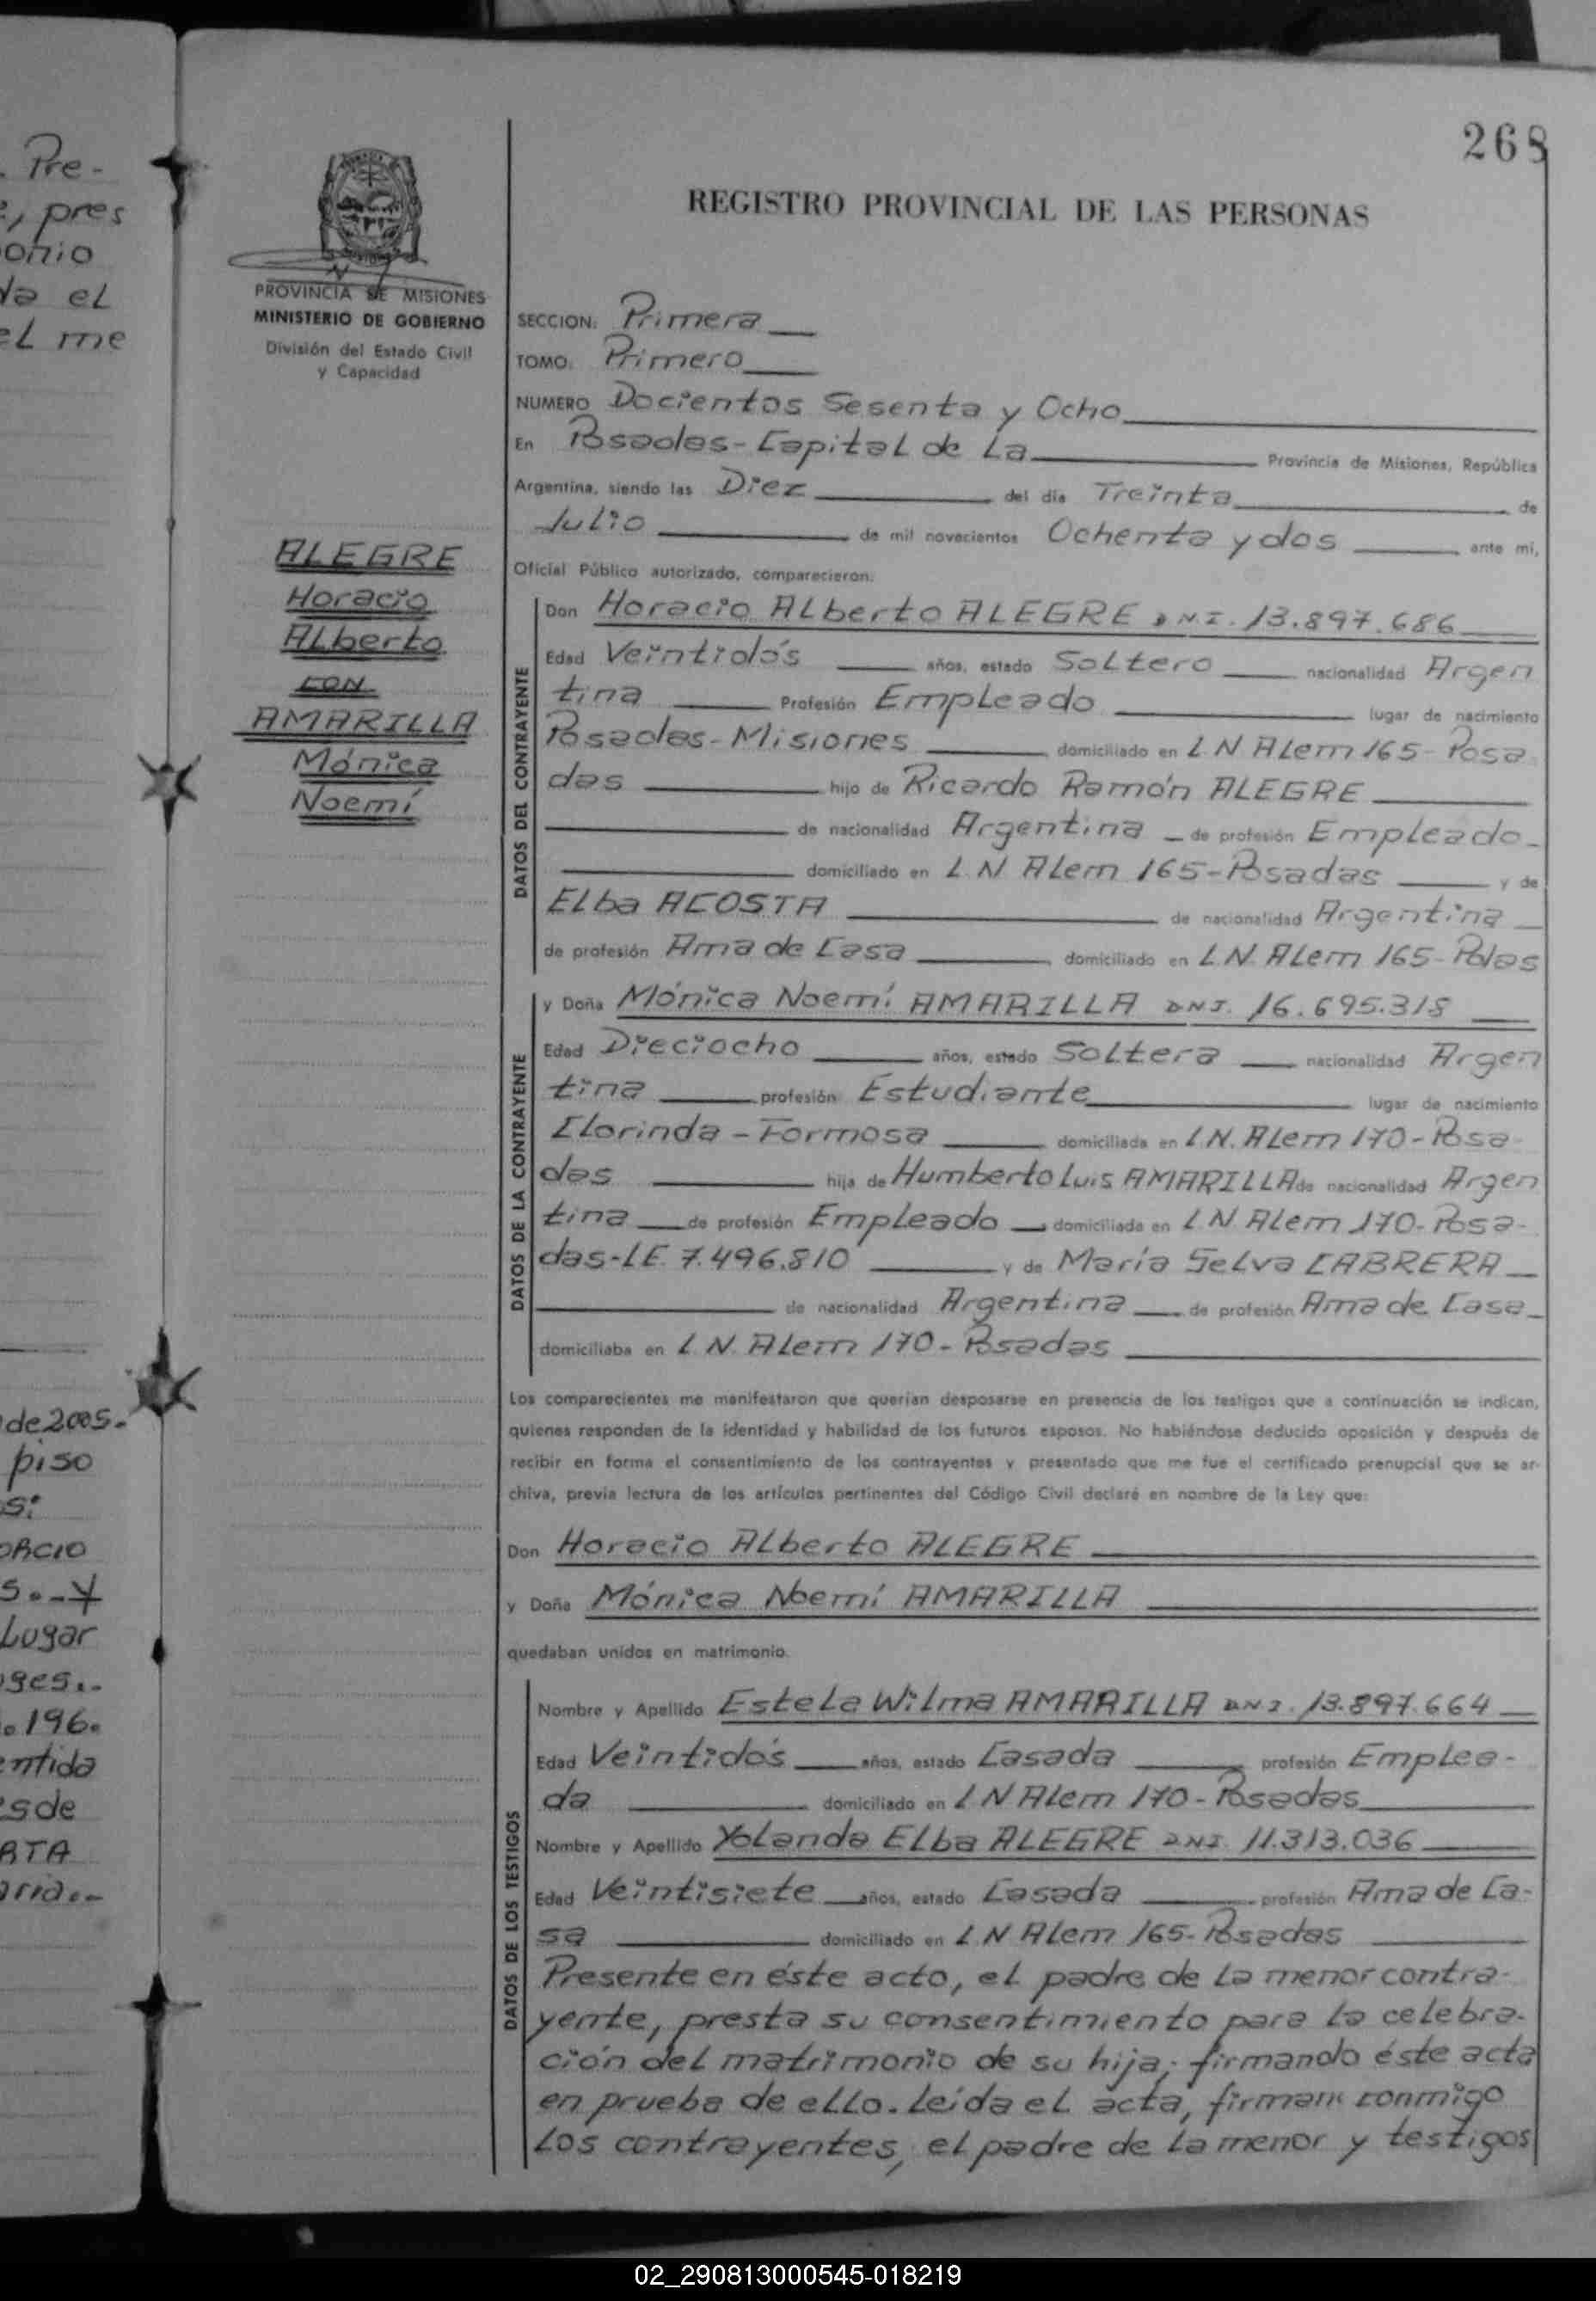 . Pre-
, pres
onio
da el
el me
de 2005.
piso
s:
ORCIO
s.-Y
Lugar
ges..
o.196.
entida
sde
ATA
aria.-
268
REGISTRO PROVINCIAL DE LAS PERSONAS
PROVINCIA DE MISIONES
MINISTERIO DE GOBIERNO
División del Estado Civil
y Capacidad
ALEGRE
Horacio
Alberto
CON
AMARILLA
Mónica
Noemí
SECCION: Primera
TOMO: Primero
NUMERO Docientos Sesenta y Ocho
En Posadas-Capital de La Provincia de Misiones, República
Argentina, siendo las Diez del día Treinta de
Julio de mil novecientos Ochenta y dos ante mí,
Oficial Público autorizado, comparecieron:
DATOS DEL CONTRAYENTE
Don Horacio Alberto ALEGRE DNI. 13.897.686
Edad Veintidós años, estado Soltero nacionalidad Argen
tina Profesión Empleado lugar de nacimiento
Posadas-Misiones domiciliado en L N Alem 165-Posa
das hijo de Ricardo Ramón ALEGRE
de nacionalidad Argentina de profesión Empleado-
domiciliado en L. N Alem 165-Posadas y de
Elba ACOSTA de nacionalidad Argentina
de profesión Ama de Casa domiciliado en L N. Alem 165-Pdas
DATOS DE LA CONTRAYENTE
y Doña Mónica Noemí AMARILLA DNI. 16.695.318
Edad Dieciocho años, estado Soltera nacionalidad Argen
tina profesión Estudiante lugar de nacimiento
Clorinda-Formosa domiciliada en L.N. Alem 170-Posa-
das hija de Humberto Luis AMARILLA de nacionalidad Argen
tina de profesión Empleado domiciliada en L N. Alem 170-Posa-
das-LE. 7.496.810 y de María Selva CABRERA
de nacionalidad Argentina de profesión Ama de Casa
domiciliaba en L. N. Alem 170-Posadas
Los comparecientes me manifestaron que querían desposarse en presencia de los testigos que a continuación se indican,
quienes responden de la identidad y habilidad de los futuros esposos. No habiéndose deducido oposición y después de
recibir en forma el consentimiento de los contrayentes y presentado que me fue el certificado prenupcial que se ar-
chiva, previa lectura de los artículos pertinentes del Código Civil declaré en nombre de la Ley que:
Don Horacio Alberto ALEGRE
y Doña Mónica Noemí AMARILLA
quedaban unidos en matrimonio.
DATOS DE LOS TESTIGOS
Nombre y Apellido Estela Wilma AMARILLA DNI. 13.897.664
Edad Veintidós años, estado Casada profesión Emplea-
da domiciliado en L N Alem 170-Posadas
Nombre y Apellido Yolanda Elba ALEGRE DNI. 11.313.036
Edad Veintisiete años, estado Casada profesión Ama de Ca-
sa domiciliado en L N Alem 165-Posadas
Presente en éste acto, el padre de la menor contra-
yente, presta su consentimiento para la celebra-
ción del matrimonio de su hija, firmando éste acta
en prueba de ello. Leída el acta, firman conmigo
los contrayentes, el padre de la menor y testigos
02_290813000545-018219